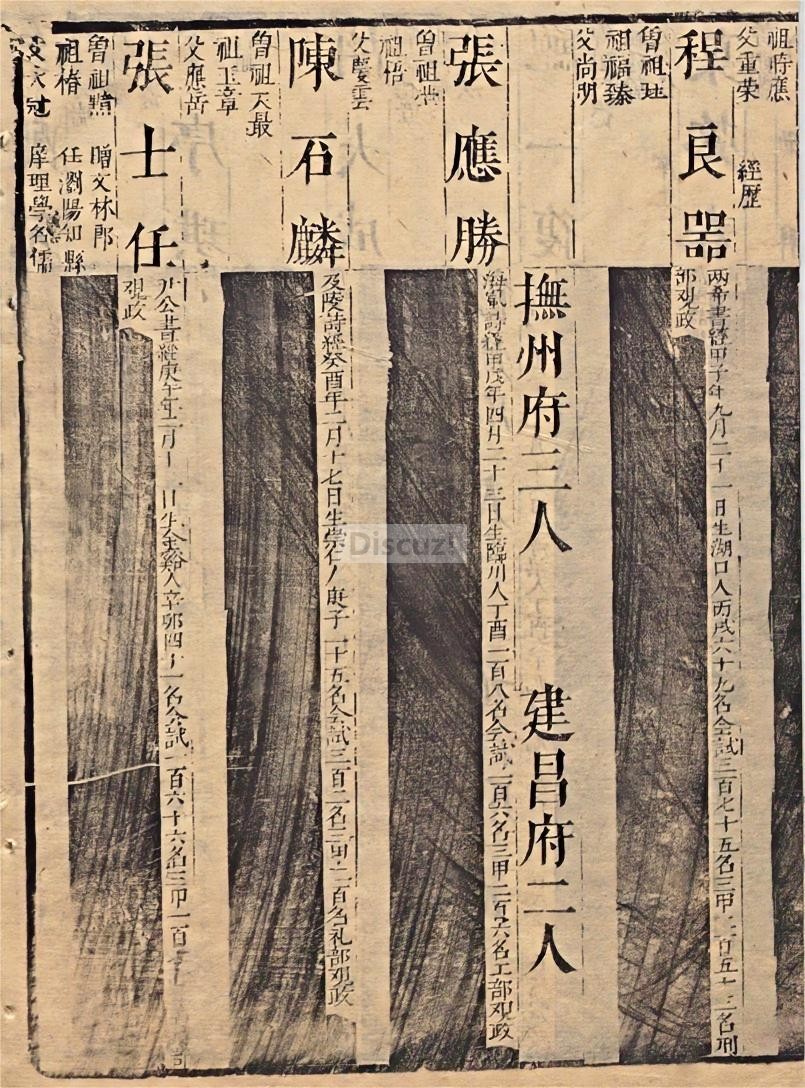 祖時應
父重荣 經歷
程良器
兩希書經甲子年九月二十一日生湖口人丙戌六十九名会試三百七十五名三甲二百五十三名刑
部观政
曾祖珪
祖福臻
父尚明
撫州府三人 建昌府二人
張應勝
詩經甲戌年四月二十三日生臨川人丁酉一百八名会試一百六名三甲二百六名工部观政
曾祖
祖悟
父慶雲
陳石麟
及陵詩經癸酉年二月十七日生崇仁人庚子二十五名会試三百二名三甲二百名礼部观政
曾祖天最
祖玉章
父應岳
張士任
公書經庚午年十一月十日生金谿人辛卯四十一名会試一百六十六名三甲一百
观政
曾祖 贈文林郎
祖椿 任瀏陽知縣
父 冠 庠理學名儒
Discuz!